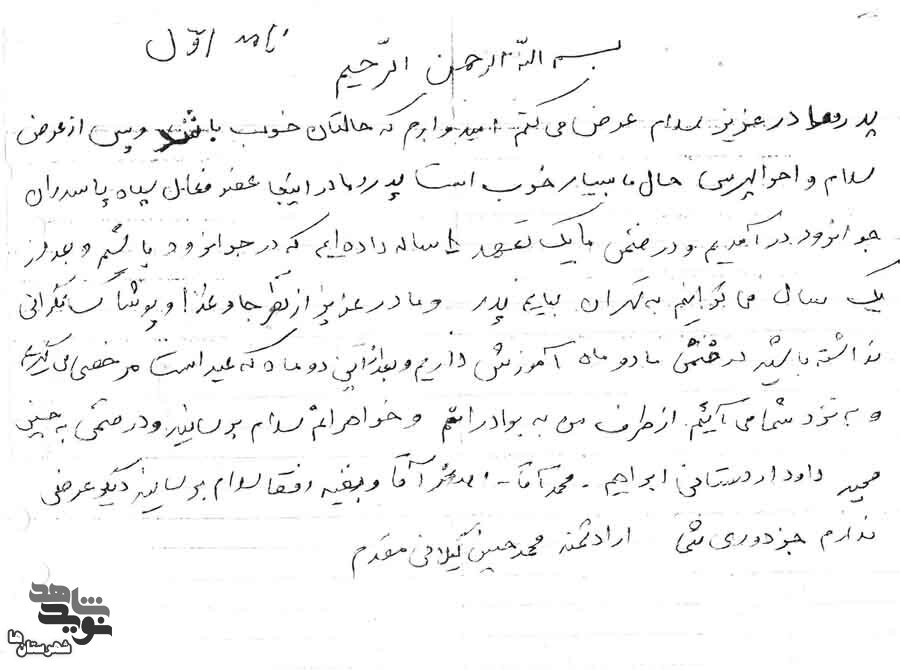 نامه اوّل
بسم اللّه الرحمن الرّحیم
پدر و مادر عزیز سلام عرض می کنم امیدوارم که حالتان خوب باشد و پس از عرض
سلام و احوالپرسی حال ما بسیار خوب است پدر و مادر اینجا عضو فعال سپاه پاسداران
جوانرود در آمدیم و در ضمن ما یک تعهد ساله داده ایم که در جوانرود باشیم و بعد از
یک سال می توانیم به تهران بیایم پدر و مادر عزیز از نظر جا و غذا و پوشاک نگرانی
نداشته باشید در ضمن ما دو ماه آموزش داریم و بعد از این دو ماه که عید است مرخصی می گیریم
و به نزد شما می آئیم از طرف من به برادرانم و خواهرانم سلام برسانید و در ضمن به حسین
مجید داود اردستانی ابراهیم - محمد آقا - اصغر آقا و بقیه رفقا سلام برسانید دیگر عرضی
ندارم جز دوری شما ارادتمند محمد حسین گیلانی مقدم
نوید شاهد
شهرستان ها